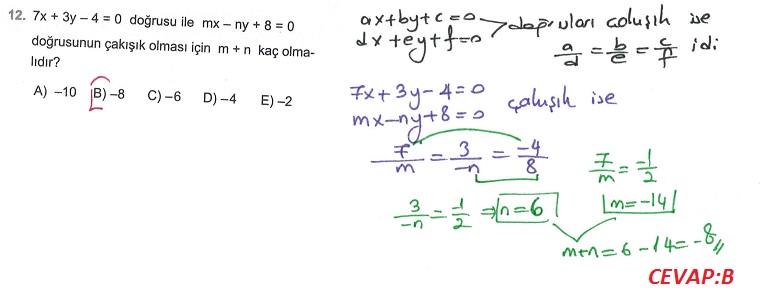 12. 7x + 3y – 4 = 0 doğrusu ile mx – ny + 8 = 0
doğrusunun çakışık olması için m + n kaç olma-
lıdır?
A) –10 B) –8 C) –6 D) –4 E) –2
ax+by+c=0
dx+ey+f=0 doğruları çakışık ise
a/d = b/e = c/f idi
7x+3y-4=0
mx-ny+8=0 çakışık ise
7/m = 3/-n = -4/8
7/m = -1/2
m=-14
3/-n = -1/2 ⇒ n=6
m+n=6-14=-8//
CEVAP:B